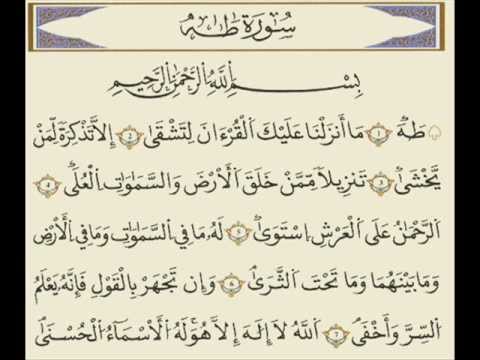 سُورَةُ طٰهٰ
بِسْمِ اللَّهِ الرَّحْمَٰنِ الرَّحِيمِ
طه ١ مَا أَنزَلْنَا عَلَيْكَ الْقُرْءَانَ لِتَشْقَىٰ ٢ إِلَّا تَذْكِرَةً لِّمَنْ
يَخْشَىٰ ٣ تَنزِيلًا مِّمَّنْ خَلَقَ الْأَرْضَ وَالسَّمَٰوَٰتِ الْعُلَى ٤
الرَّحْمَٰنُ عَلَى الْعَرْشِ اسْتَوَىٰ ٥ لَهُ مَا فِي السَّمَٰوَٰتِ وَمَا فِي الْأَرْضِ
وَمَا بَيْنَهُمَا وَمَا تَحْتَ الثَّرَىٰ ٦ وَإِن تَجْهَرْ بِالْقَوْلِ فَإِنَّهُ يَعْلَمُ
السِّرَّ وَأَخْفَى ٧ اللَّهُ لَا إِلَٰهَ إِلَّا هُوَ لَهُ الْأَسْمَاءُ الْحُسْنَىٰ